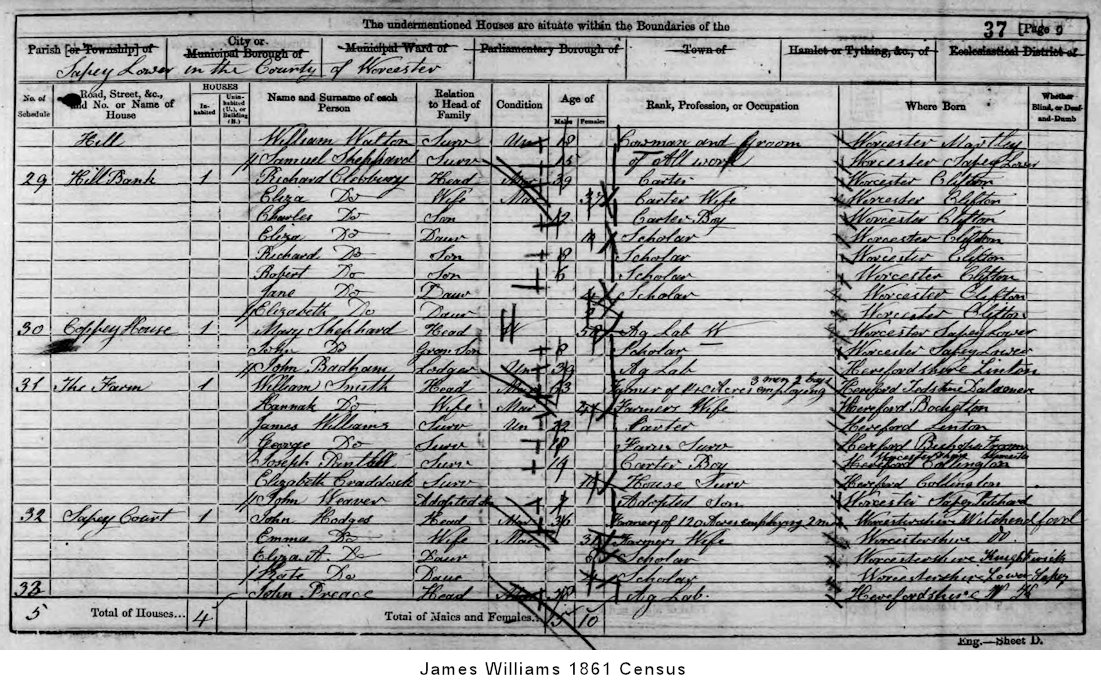 The undermentioned Houses are situate within the Boundaries of the
37 [Page 9
Parish [or Township] of
City or Municipal Borough of
Municipal Ward of
Parliamentary Borough of
Town of
Hamlet or Tything, &c., of
Ecclesiastical District of
Sapey Lower in the County of Worcester
No. of Schedule
Road, Street, &c., and No. or Name of House
HOUSES
Inhabited
Uninhabited (U.), or Building (B.)
Name and Surname of each Person
Relation to Head of Family
Condition
Age of
Males
Females
Rank, Profession, or Occupation
Where Born
Whether Blind, or Deaf-and-Dumb
Hill William Walton Serv Un 18 Cowman and Groom Worcester Martley
Samuel Shephard Serv 15 of All work Worcester Sapey Lower
29 Hill Bank 1 Richard Clebbery Head Mar 39 Carter Worcester Clifton
Eliza Do Wife Mar 37 Carter Wife Worcester Clifton
Charles Do Son 12 Carter Boy Worcester Clifton
Eliza Do Daur Scholar Worcester Clifton
Richard Do Son 8 Scholar Worcester Clifton
Robert Do Son 6 Scholar Worcester Clifton
Jane Do Daur 4 Scholar Worcester Clifton
Elizabeth Do Daur Worcester Clifton
30 Coppey House 1 Mary Shephard Head W 58 Ag Lab W Worcester Sapey Lower
John Do Gran Son 8 Scholar Worcester Sapey Lower
John Badham Lodger Un 39 Ag Lab Herefordshire Linton
31 The Farm 1 William Smith Head Mar Farmer of Acres employing 3 men 2 boys Hereford Tedstone Delamere
Hannah Do Wife Mar Farmers Wife Hereford Bockleton
James Williams Serv Un 22 Carter Hereford Linton
George Do Serv 18 Farm Serv Hereford Bishops Froom
Joseph Serv 14 Carter Boy Hereford Collington
Elizabeth Craddock Serv House Serv Hereford Collington
John Weaver Adopted Son 7 Adopted Son Worcester Sapey Pitchard
32 Sapey Court 1 John Hodges Head Mar 36 Farmers of 120 Acres employing 2 m Worcestershire Witchendford
Emma Do Wife Mar Farmers Wife Worcestershire Do
Eliza A. Do Daur 6 Scholar Worcestershire Knightwick
Kate Do Daur 4 Scholar Worcestershire Lower Sapey
33 John Preace Head Mar 48 Ag Lab. Herefordshire N K
5 Total of Houses... 4 Total of Males and Females... 15 10
Eng.—Sheet D.
James Williams 1861 Census